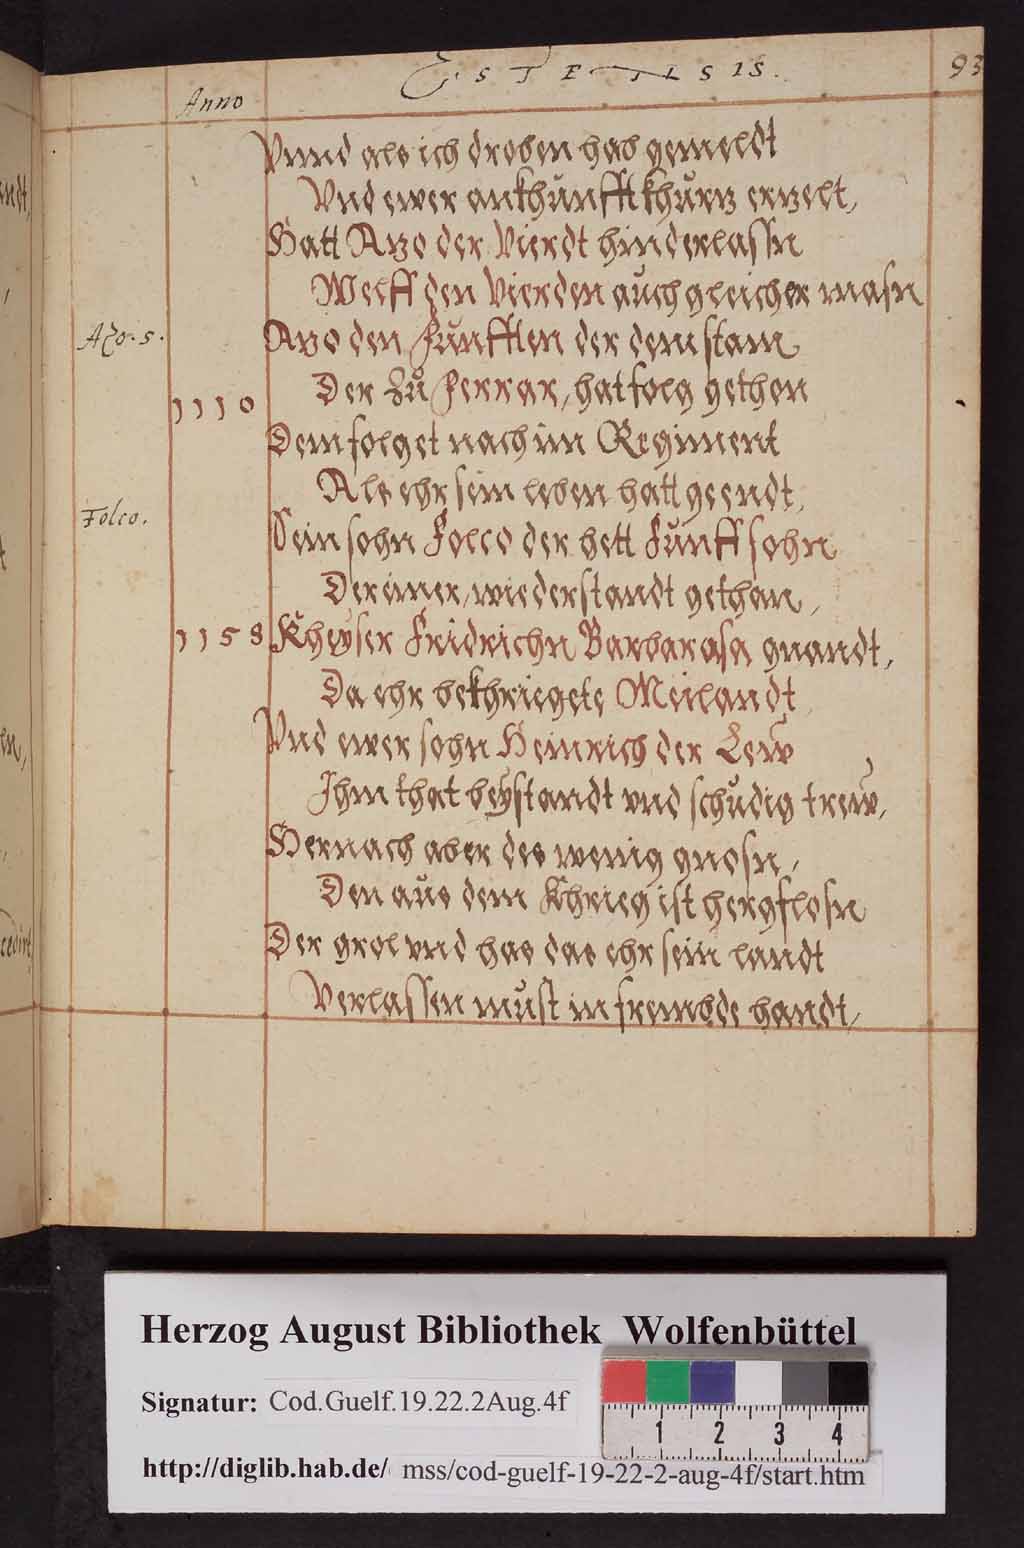 ESTENSIS. 93
Anno
Vnnd als ich droben hab gemeldt
Vnd ewer ankhunfft khurtz erzelt,
Hatt Azo der Vierdt hinderlassn
Welff den Vierden auch gleicher masn
Azo. 5. Azo den Funfften der dem stam
1110 Der Zu Ferrar, hat folg gethon
Dem folget nach im Regiment
Als ehr sein leben hatt geendt,
Folco. Sein sohn Folco der hett Funff sohn
Der einer, wiederstandt gethan,
1158 Kheyser Fridrichn Barbarasa gnandt,
Da ehr bekhriegete Meilandt,
Vnd ewer sohn Heinrich der Lew
Ihm that beystandt vnd schudig trew,
Hernach aber des wenig gnosn,
Den aus dem Khrieg ist hergflosn
Der grol vnd has das ehr sein landt
Verlassen must in frembde handt,
Herzog August Bibliothek Wolfenbüttel
Signatur: Cod.Guelf.19.22.2Aug.4f
1 2 3 4
http://diglib.hab.de/ mss/cod-guelf-19-22-2-aug-4f/start.htm